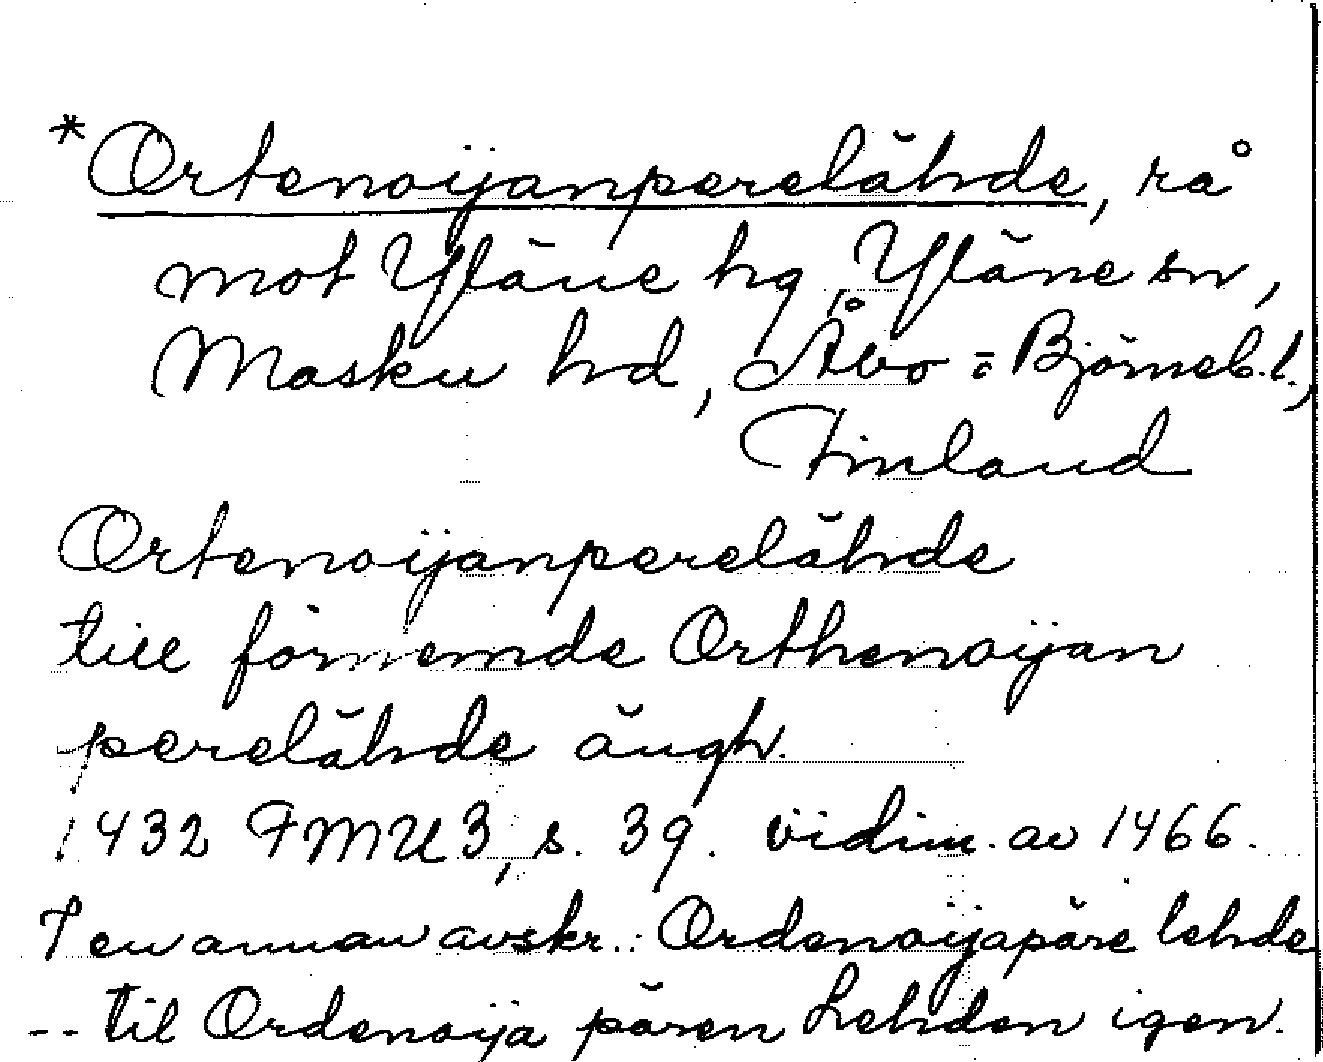 *Ortenoijanperelähde, rå
mot Yläne hg, Yläne sn,
Masku hd, Åbo=Björneb.l.,
Finland
Ortenoijanperelähde
till förnemde Orthenoijan
perelähde ängh.
1432 FMU 3, s. 39. vidim. av 1466.
I en annan avskr.: Ordenoijapäre lehde
-- til Ordenoija pären Lehden igen.